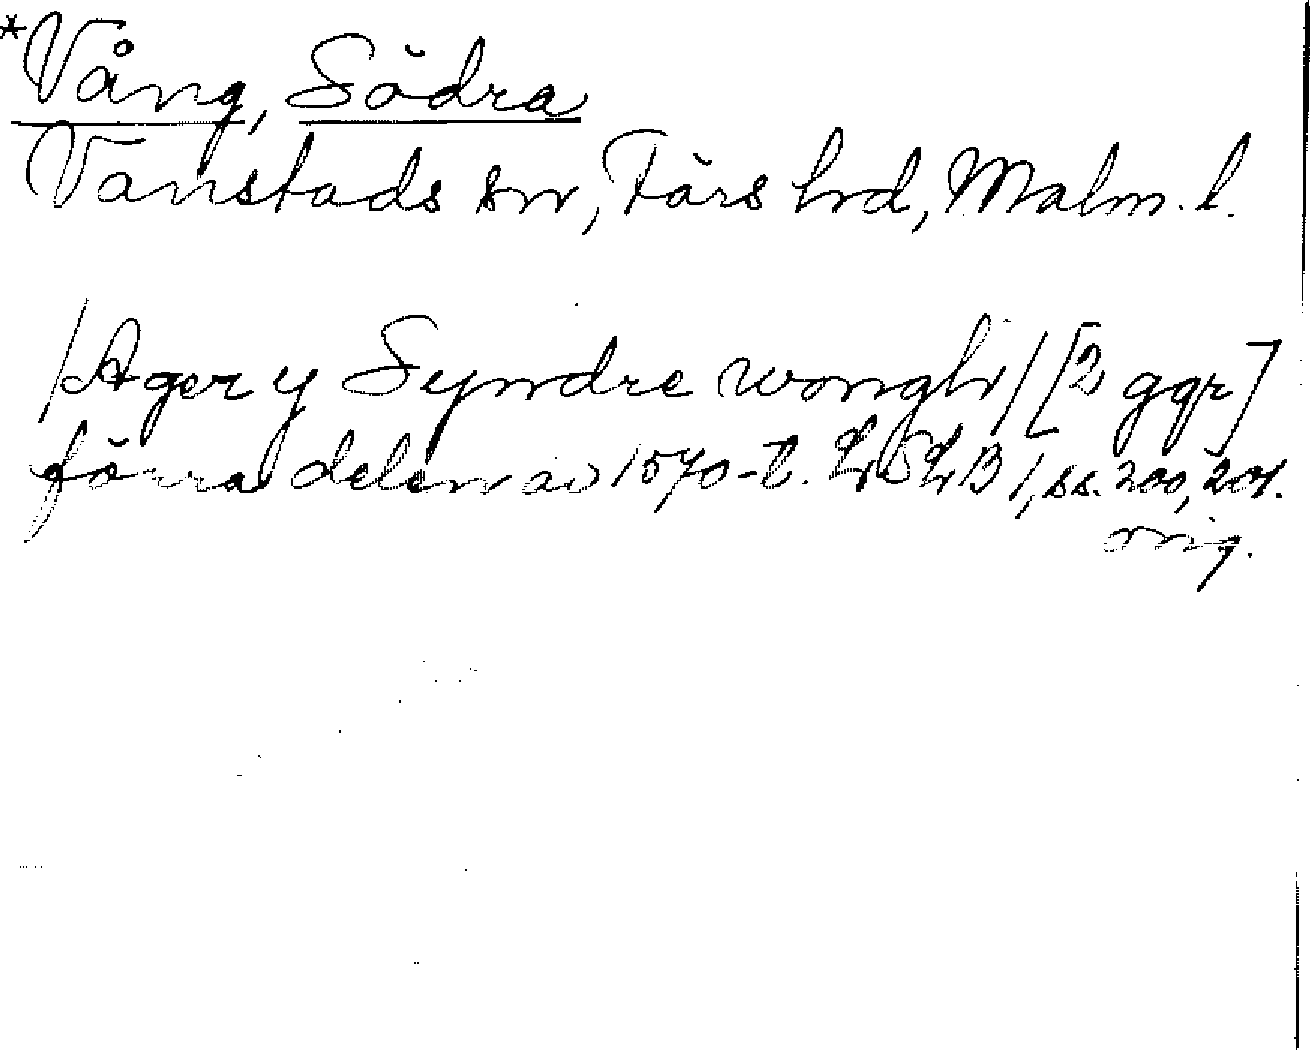 *Vång, Södra
Vanstads sn, Färs hd, Malm. l.
/Ager y Syndre wongh/ [2 ggr]
förra delen av 1570-t. LDLB 1, ss. 200, 201.
orig.